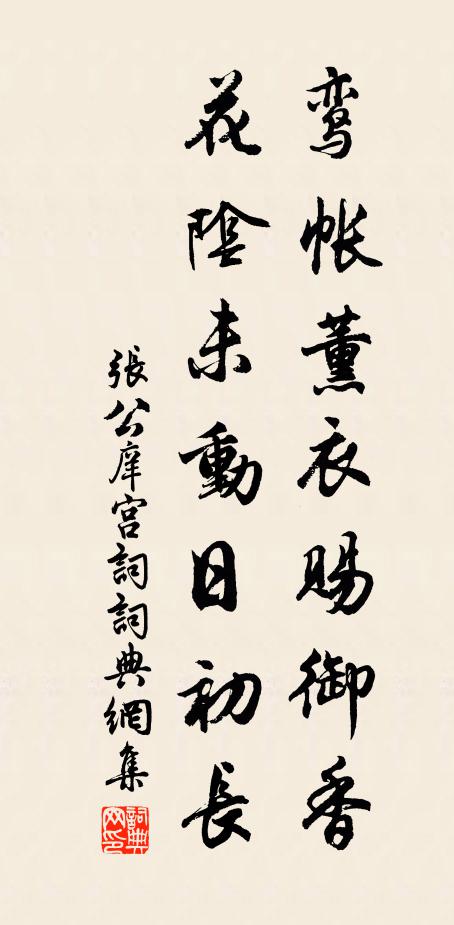 鸾帐薰衣賜御香
花陰未動日初長
張公庠宫詞詞典網集
詞典网印